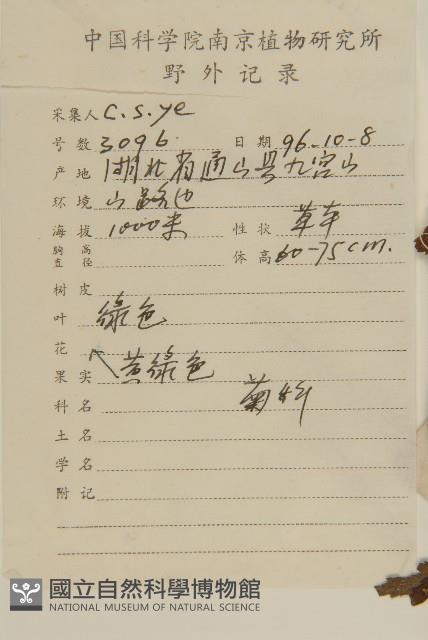 中国科学院南京植物研究所
野外记录
采集人 C.S.Ye
号数 3096 日期 96-10-8
产地 湖北省通山县九宫山
环境 山路边
海拔 1000米 性状 草本
胸高直径 体高 60-75cm.
树皮
叶 绿色
花
果实 黄绿色
科名 菊科
土名
学名
附记
國立自然科學博物館
NATIONAL MUSEUM OF NATURAL SCIENCE